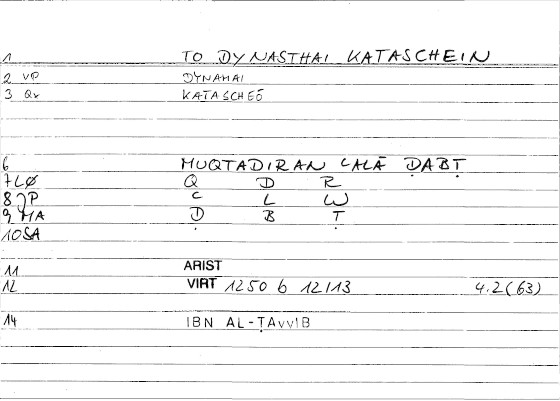 1 TO DYNASTHAI KATASCHEIN
2 VP DYNAMAI
3 Qv KATASCHEŌ
6 MUQTADIRAN ʿALĀ ḌABṬ
7 LØ Q D R
8 JP ʿ L W
9 MA Ḍ B Ṭ
10 SA
11 ARIST
12 VIRT 1250 b 12/13 4.2(63)
14 IBN AL-ṬAyyIB